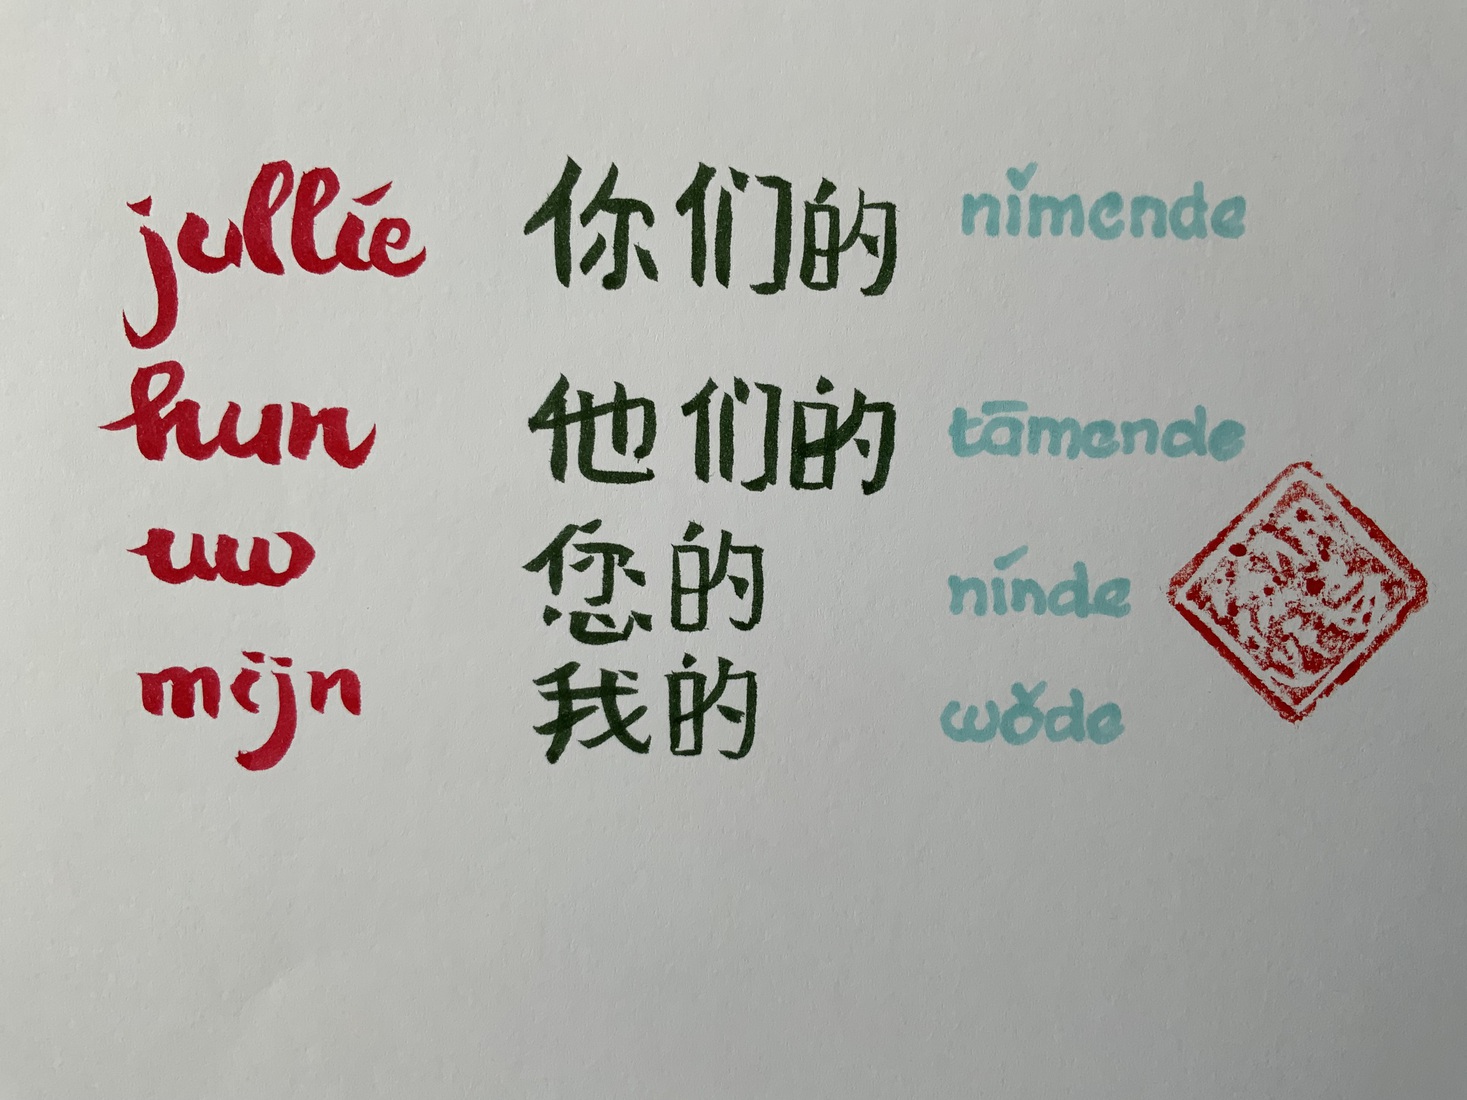 jullie 你们的 nǐmende
hun 他们的 tāmende
uw 您的 nínde
mijn 我的 wǒde